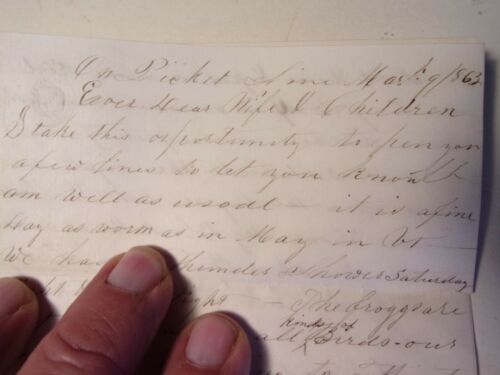 On Picket Line Mar 9/1863
Ever Dear Wife & Children
I take this oportunity to pen you
a few lines to let you know I
am well as usual — it is a fine
day as worm as in May in Vt —
We ha Thunder Shower Saturday
ght — The froggs are
kinds of
all Birds - our